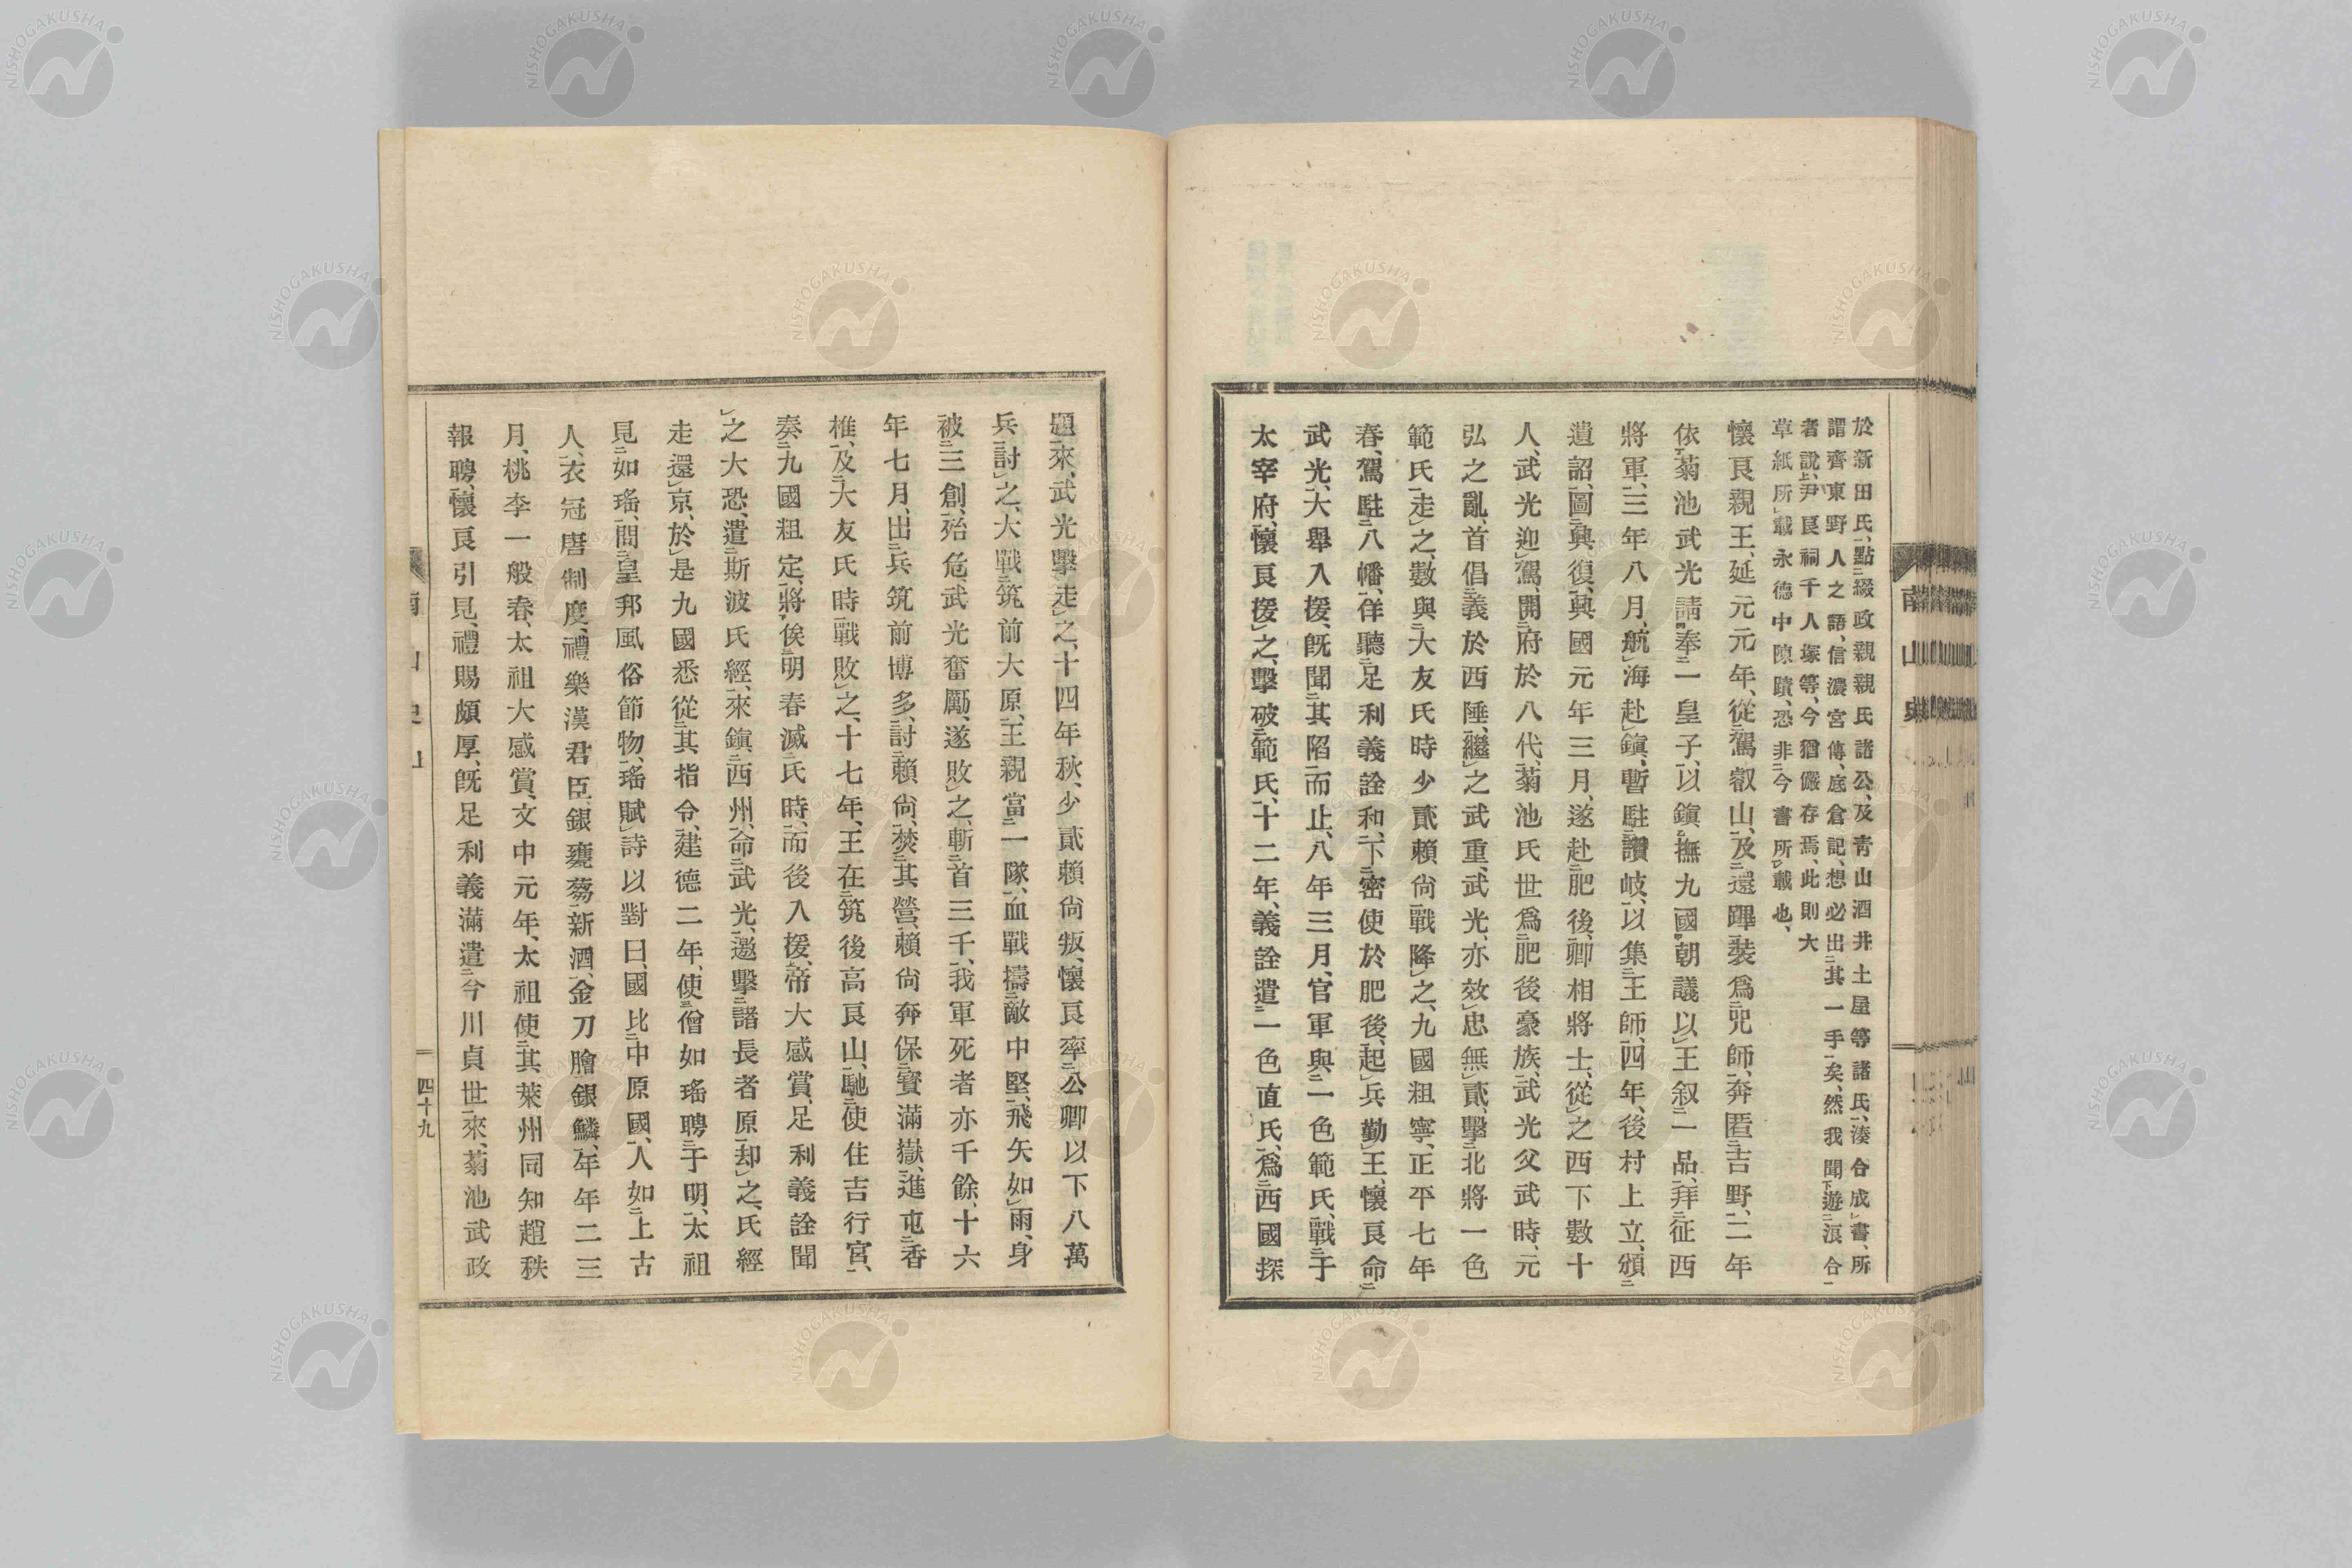 於新田氏、點綴政親親氏諸公、及青山酒井土屋等諸氏、湊合成書、所
謂齊東野人之語、信濃宮傳、底倉記、想必出其一手矣、然我聞遊浪合
者說、尹良祠千人塚等、今猶儼存焉、此則大
草紙所載永德中陳蹟、恐非今書所載也、
懷良親王、延元元年、從駕叡山、及還蹕裝爲兜師、奔匿吉野、二年
依菊池武光請、奉一皇子、以鎭撫九國、朝議以王叙一品、拜征西
將軍、三年八月、航海赴鎭、暫駐讚岐、以集王師、四年、後村上立、頒
遺詔、圖興復、興國元年三月、遂赴肥後、卿相將士、從之西下數十
人、武光迎駕、開府於八代、菊池氏世爲肥後豪族、武光父武時、元
弘之亂、首倡義於西陲、繼之武重、武光、亦效忠無貳、擊北將一色
範氏走之、數與大友氏時少貳賴尙戰降之、九國粗寧、正平七年
春、駕駐八幡、佯聽足利義詮和、下密使於肥後、起兵勤王、懷良命
武光、大擧入援、旣聞其陷而止、八年三月、官軍與一色範氏、戰于
太宰府、懷良援之、擊破範氏、十二年、義詮遣一色直氏、爲西國探
題來、武光擊走之、十四年秋、少貳賴尙叛、懷良率公卿以下八萬
兵討之、大戰筑前大原、王親當一隊、血戰擣敵中堅、飛矢如雨、身
被三創、殆危、武光奮勵、遂敗之、斬首三千、我軍死者亦千餘、十六
年七月、出兵筑前博多、討賴尙、焚其營、賴尙奔保寶滿嶽、進屯香
椎、及大友氏時戰敗之、十七年、王在筑後高良山、馳使住吉行宮、
奏九國粗定、將俟明春滅氏時、而後入援、帝大感賞、足利義詮聞
之大恐、遣斯波氏經、來鎭西州、命武光、邀擊諸長者原却之、氏經
走還京、於是九國悉從其指令、建德二年、使僧如瑤聘于明、太祖
見如瑤、問皇邦風俗節物、瑤賦詩以對曰、國比中原國、人如上古
人、衣冠唐制度、禮樂漢君臣、銀甕蒭新酒、金刀膾銀鱗、年年二三
月、桃李一般春、太祖大感賞、文中元年、太祖使其萊州同知趙秩
報聘、懷良引見、禮賜頗厚、旣足利義滿遣今川貞世來、菊池武政
四十九
南山史
NISHOGAKUSHA